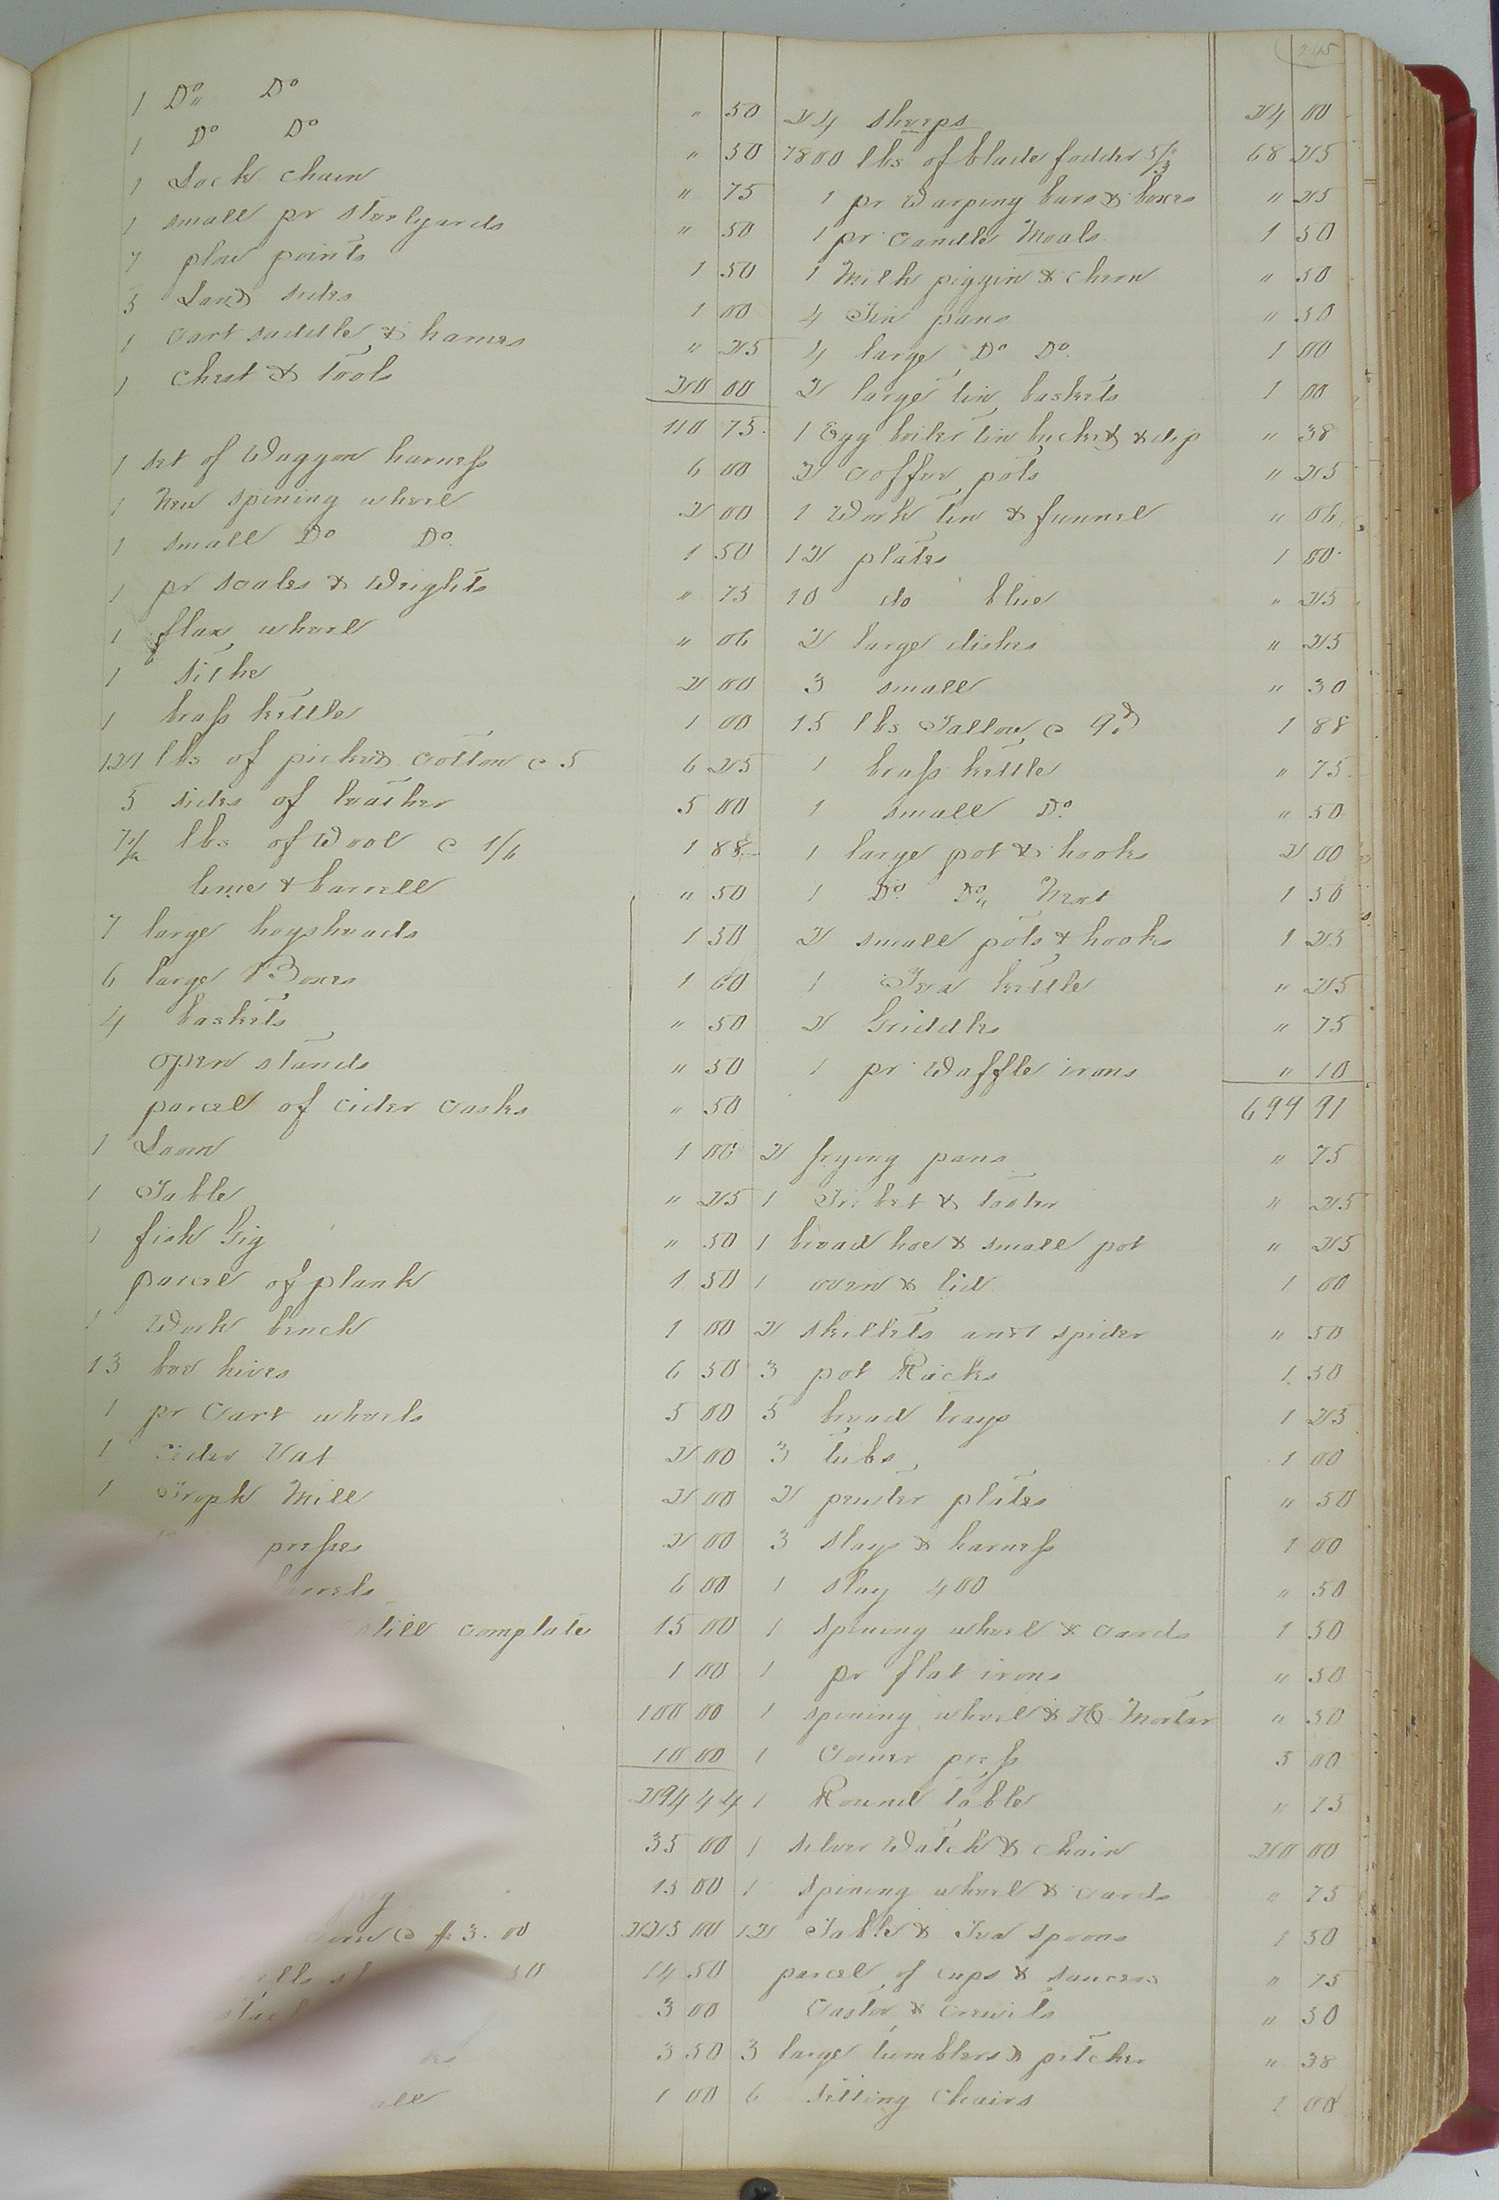 245
1 Do Do " 50
1 Do Do " 50
1 Lock chain " 75
1 small pr Steelyards " 50
7 plow points 1 50
3 Land sides 1 00
1 Cart saddle & hames " 25
1 Chest & Tools 20 00
110 75
1 Set of Waggon harness 6 00
1 New spining wheel 2 00
1 small Do Do 1 50
1 pr Scales & Weights " 75
1 flax wheel " 06
1 Sithe 2 00
1 brass kettle 1 00
121 lbs of picked Cotton @ 5 6 25
5 sides of leather 5 00
7 1/2 lbs of Wool @ 1/6 1 88
lime & barrell " 50
7 large hogsheads 1 50
6 large Boxes 1 00
4 baskets " 50
open stands " 50
parcel of Cider Casks " 50
1 Loom 1 00
1 Table " 25
1 fish Gig " 50
parcel of plank 1 50
1 Work bench 1 00
13 bee hives 6 50
1 pr Cart wheels 5 00
1 Cider Vat 2 00
1 Mill 2 00
presses 2 00
6 00
still complate 15 00
1 00
100 00
10 00
294 44
35 00
15 00
@ $3.00 225 00
50 14 50
3 00
3 50
1 00
24 Sheeps 24 00
7800 lbs of blade fodder 68 25
1 pr Warping bars & boxes " 25
1 pr Candle Moals 1 50
1 Milk piggin & chern " 50
4 Tin pans " 50
4 large Do Do 1 00
2 large tin baskets 1 00
1 Egg boiler tin bucket & dip " 38
2 Coffee pots " 25
1 Work tin & funnel " 06
12 plates 1 00
10 do blue " 25
2 large dishes " 25
3 small " 30
15 lbs Tallow @ 9d 1 88
1 brass kettle " 75
1 small Do " 50
1 large pot & hooks 2 00
1 Do Do Next 1 50
2 small pots & hooks 1 25
1 Tea kettle " 25
2 Griddles " 75
1 pr Waffle irons " 10
694 91
2 frying pans " 75
1 Tribet & " 25
1 broad hoe & small pot " 25
1 oven & lid 1 00
2 skillets and spider " 50
3 pot Racks 1 50
5 bread trays 1 25
3 tubs 1 00
2 pewter plates " 50
3 Slays & harness 1 00
1 Slay 400 " 50
1 Spining wheel & Cards 1 50
1 pr flat irons " 50
1 spining wheel & Mortar " 50
1 Corner press 5 00
1 Round Table " 75
1 Silver Watch & Chain 20 00
1 Spining wheel & Cards " 75
12 Table & Tea Spoons 1 50
parcel of Cups & Saucers " 75
Castor & Cruits " 50
3 large tumblers & pitcher " 38
6 Sitting Chairs 1 00